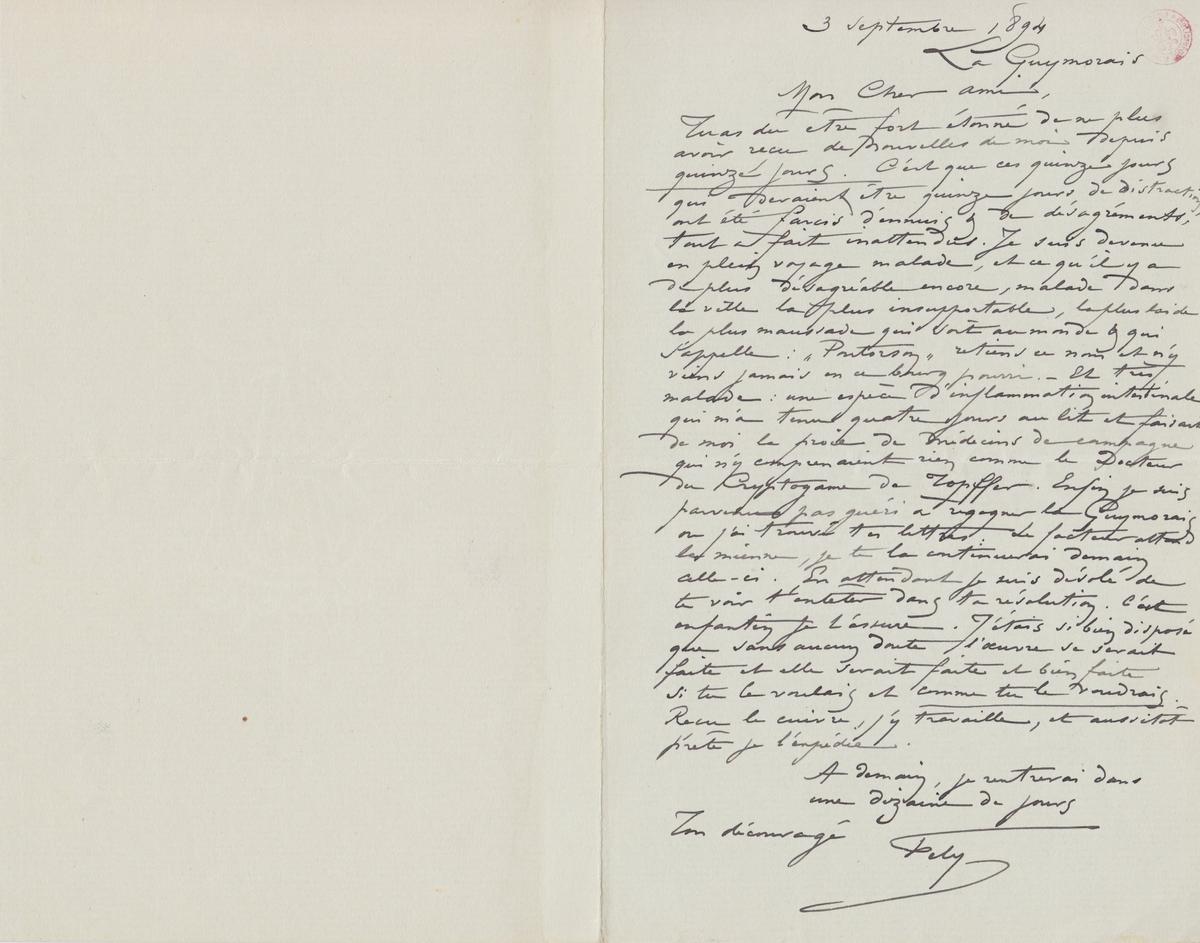 3 Septembre 1894
La Guymorais
Mon Cher ami,
Tu as du être fort étonné de ne plus
avoir reçu de nouvelles de moi depuis
quinze jours. C'est que ces quinze jours
qui devaient être quinze jours de distraction
ont été farcis d'ennuis & de désagréments,
tout à fait inattendus. Je suis devenu
en plein voyage malade, et ce qu'il y a
de plus désagréable encore, malade dans
la ville la plus insupportable, la plus laide
la plus maussade qui soit au monde & qui
s'appelle : „Pontorson„ retiens ce nom et n'y
viens jamais en ce bourg pourri. – Et très
malade : une espèce d'inflammation intestinale
qui m'a tenu quatre jours au lit et faisant
de moi la proie de médecins de campagne
qui n'y comprenaient rien comme le Docteur
du Cryptogame de Topffer. Enfin je suis
parvenu pas guéri à regagner la Guymorais
ou j'ai trouvé tes lettres. Le facteur attend
la mienne, je te la continuerai demain
celle-ci. En attendant je suis désolé de
te voir t'entêter dans ta résolution. C'est
enfantin je t'assure. J'étais si bien disposé
que sans aucun doute l'œuvre se serait
faite et elle serait faite et bien faite
si tu le voulais et comme tu le voudrais.
Reçu le cuivre, j'y travaille, et aussitôt
prête je l'expédie.
A demain, je rentrerai dans
une dizaine de jours
Ton découragé
Fély